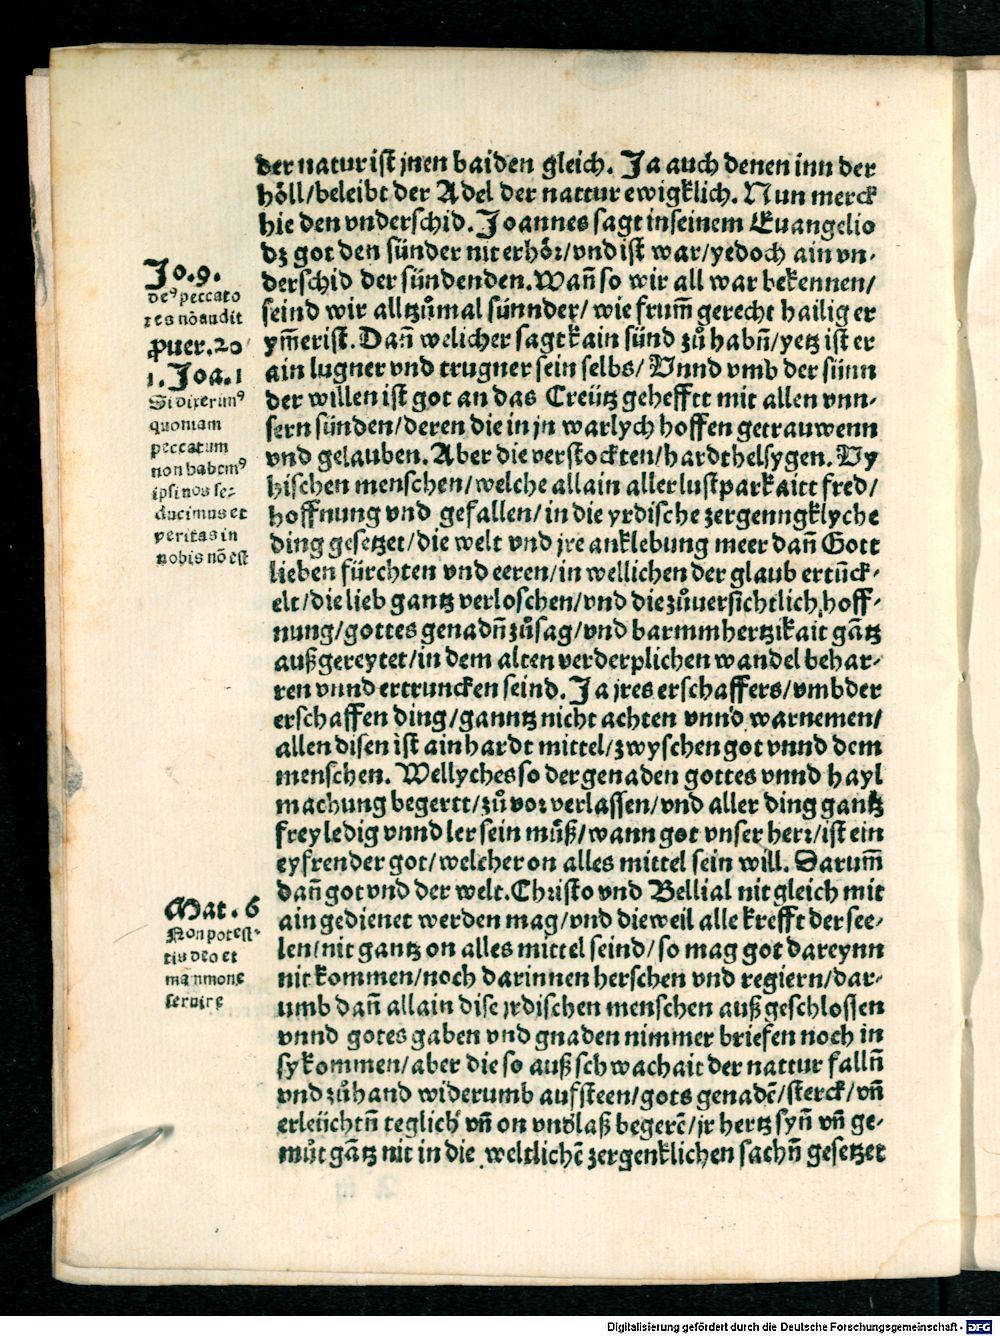 der natur ist jnen baiden gleich. Ja auch denen inn der
höll/beleibt der Adel der nattur ewigklich. Nun merck
hie den vnderschid. Joannes sagt inseinem Euangelio
dz got den sünder nit erhör/vnd ist war/yedoch ain vn-
derschid der sündenden. Wañ so wir all war bekennen/
seind wir alltzůmal súnnder/ wie frum̃ gerecht hailig er
ym̃erist. Dañ welicher sagt kain sünd zů habñ/yetz ist er
ain lugner vnd trugner sein selbs/ Vnnd vmb der sünn
der willen ist got an das Creütz gehefftt mit allen vnn-
sern sünden/deren die in jn warlych hoffen getrauwenn
vnd gelauben. Aber die verstockten/hardthelsygen. Vy
hischen menschen/welche allain aller lustparkaitt fred/
hoffnung vnd gefallen/in die yrdische zergenngklyche
ding gesetzet/die welt vnd jre anklebung meer dañ Gott
lieben fürchten vnd eeren/in wellichen der glaub ertück-
elt/die lieb gantz verloschen/vnd die zůuersichtlich hoff-
nung/gottes genadñ zůsag/vnd barmmhertzikait gãtz
außgereytet/in dem alten verderplichen wandel behar-
ren vnnd ertruncken seind. Ja jres erschaffers/vmbder
erschaffen ding/ganntz nicht achten vnnd warnemen/
allen disen ist ain hardt mittel/zwyschen got vnnd dem
menschen. Wellyches so der genaden gottes vnnd hayl
machung begertt/zů vor verlassen/vnd aller ding gantz
frey ledig vnnd ler sein můß/wann got vnser herr/ist ein
eyfrender got/welcher on alles mittel sein will. Darum̃
dañ got vnd der welt. Christo vnd Bellial nit gleich mit
ain gedienet werden mag/vnd dieweil alle krefft der see-
len/nit gantz on alles mittel seind/so mag got dareynn
nit kommen/noch darinnen herschen vnd regiern/dar-
umb dañ allain dise jrdischen menschen außgeschlossen
vnnd gotes gaben vnd gnaden nimmer briefen noch in
sy kommen/aber die so auß schwachait der nattur fallñ
vnd zůhand widerumb aufsteen/gots genadẽ/sterck/vñ
erleüchtñ teglich vñ on vndlaß begerẽ/jr hertz syñ vñ ge-
můt gãtz nit in die weltlichẽ zergenklichen sachñ gesetzet
Jo. 9.
deꝰ peccato
res nõ audit
Puer. 20
1. Joa. 1
Si dixerimꝰ
quoniam
peccatum
non habemꝰ
ipsi nos se-
ducimus et
veritas in
nobis nõ est
Mat. 6
Non potest-
tis deo et
mãnmone
seruire
Digitalisierung gefördert durch die Deutsche Forschungsgemeinschaft - DFG